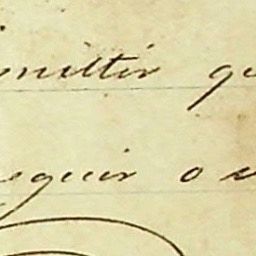 mittir qu
eguir o u